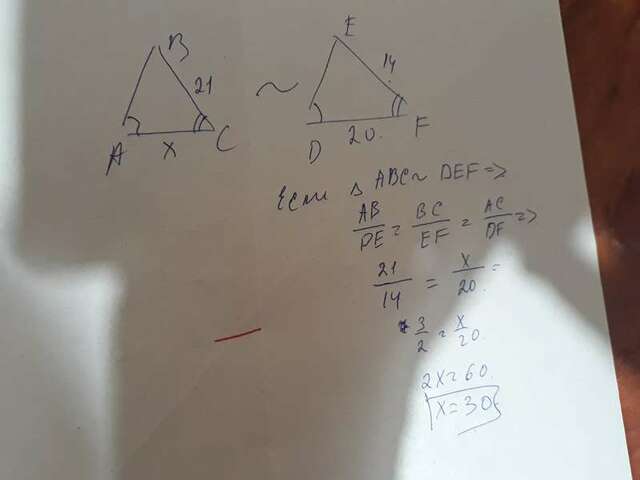 B
21
A
x
C
~
E
14
D
20.
F
Если △ ABC ~ DEF =>
AB/DE = BC/EF = AC/DF =>
21/14 = x/20. =
3/2 = x/20.
2x=60.
x=30